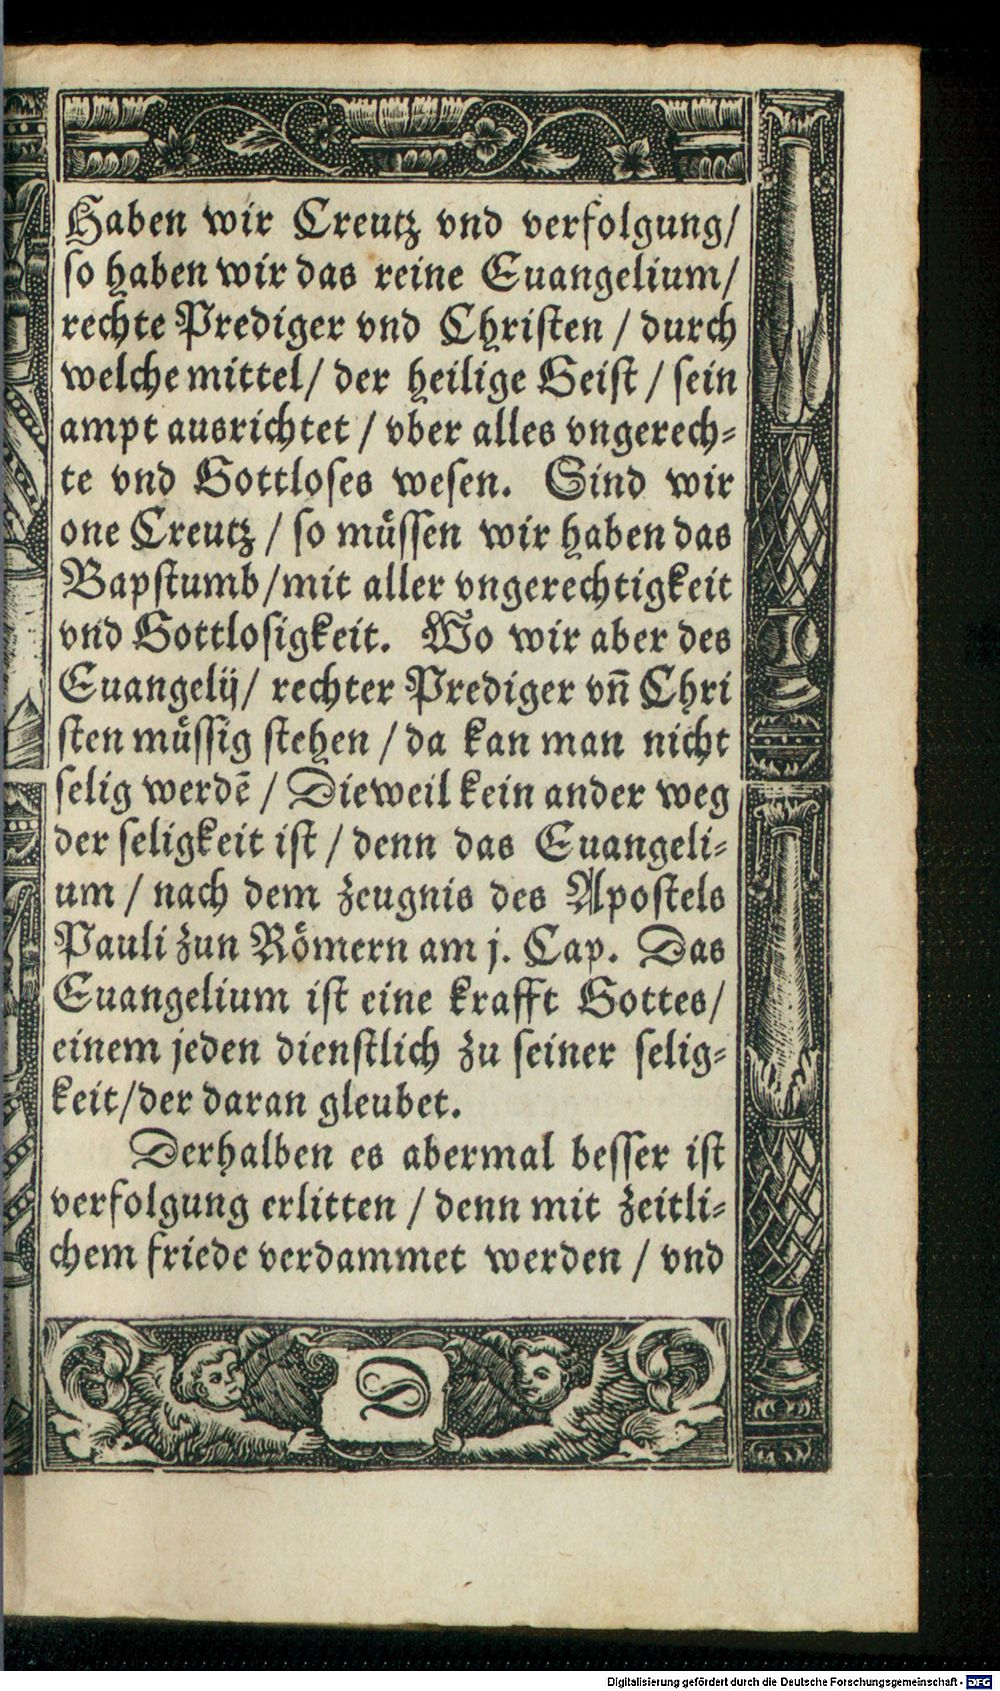 Haben wir Creutz vnd verfolgung/
so haben wir das reine Euangelium/
rechte Prediger vnd Christen / durch
welche mittel/ der heilige Geist / sein
ampt ausrichtet / vber alles vngerech-
te vnd Gottloses wesen. Sind wir
one Creutz / so müssen wir haben das
Bapstumb/mit aller vngerechtigkeit
vnd Gottlosigkeit. Wo wir aber des
Euangelij/ rechter Prediger vn̄ Chri
sten müssig stehen / da kan man nicht
selig werdē / Dieweil kein ander weg
der seligkeit ist / denn das Euangeli-
um / nach dem zeugnis des Apostels
Pauli zun Römern am j. Cap. Das
Euangelium ist eine krafft Gottes/
einem jeden dienstlich zu seiner selig-
keit/der daran gleubet.
Derhalben es abermal besser ist
verfolgung erlitten / denn mit zeitli-
chem friede verdammet werden / vnd
Digitalisierung gefördert durch die Deutsche Forschungsgemeinschaft - DFG